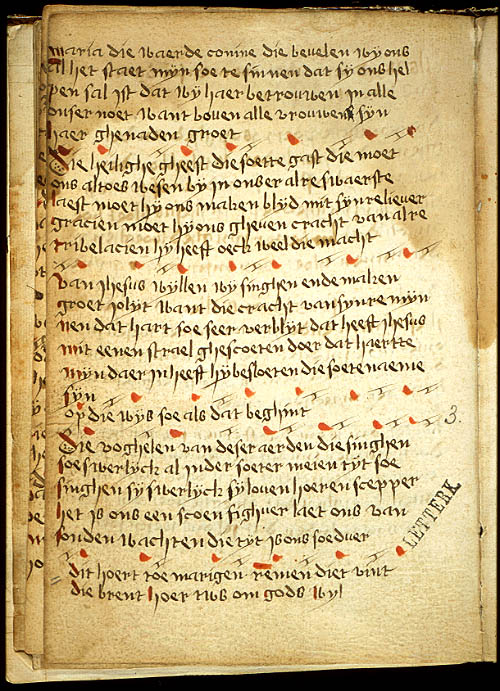 maria die waerde comme die bevelen wy ons
al het staet myn soe te sinnen dat sy ons hel
pen sal ist dat wy haer betrouwen in alle
onser noet want boven alle vrouwen syn
haer ghenaden groet
Die heilighe gheest die soette gast die moet
ons altoes wesen by in onser alre swaerste
laest moet hy ons maken blyd mit synre liever
gracien moet hy ons gheven cracht van alre
tribelacien hy heeft oeck weel die macht
van Ihesus wyllen wy singhen ende maken
groet iolyt want die cracht van synre myn
nen dat hart soe seer verblyt dat heeft ihesus
mit eenen strael ghescoeten doer dat haertte
myn daer in heeft hy besloeten die soete naeme
syn
op die wys soe als dat beghint
Die voghelen van deser aerden die singhen
soe swerlyck al in der soeter meien tyt soe
singhen sy swerlyck sy loven hoeren scepper
het is ons een scoen fighuer laet ons van
sonden wachten die tyt is ons soe duer
dit hoert toe marigen remen diet vint
die brent hoer tws om gods wyl
3.
LETTERK.